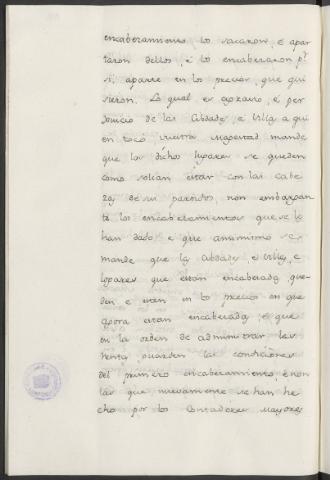 encabezamientos, lo sacaron, e apar
taron dellos, e lo encabezaron pr.
si, aparte en los precios, que qui
sieron. Lo qual es agravio, e per
Juicio de las Cibdads, e Villas a qui
en toco, vuestra Magestad mande
que los dichos lugares se queden
como solian estar con las cabe
zas de sus partidos, non embargan
te los encabezamientos que se lo
han dado, e que ansimismo se
mande que las Cibdads, e Villas, e
lugares que estan encabezads que-
den e esten en los precios en que
agora estan encabezads, e que
en la orden de administrar las
rentas, guarden las condiciones
del primero encabezamiento, e non
las que nuevamente se han he
cho por los Contadores Mayores